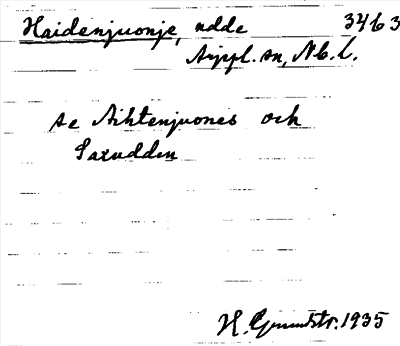 Haidenjuonje, udde 3463
Arjepl. sn, Nb. l.
se Aihtenjuones och
Saxudden
H. Grundstr. 1935